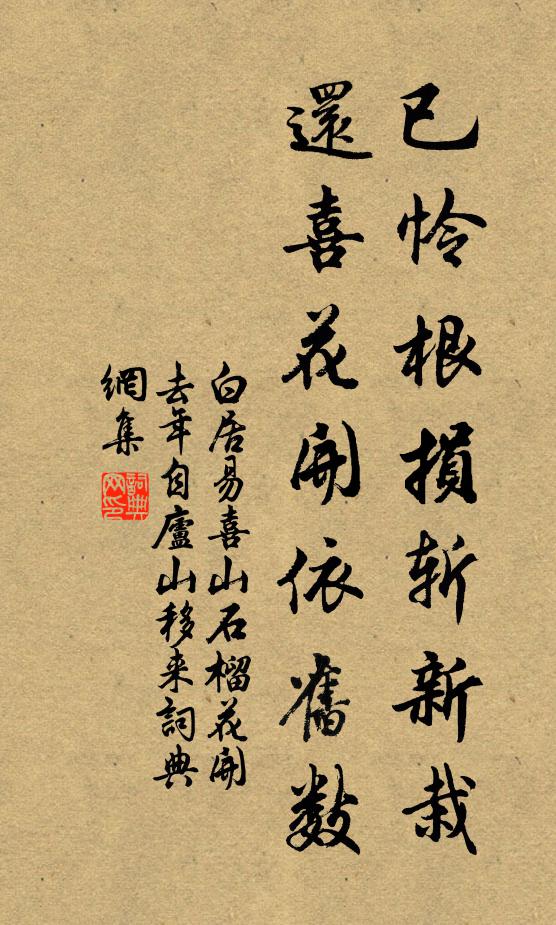 已怜根損斬新栽
還喜花開依舊数
白居易喜山石榴花開
去年自廬山移来詞典
網集
詞典
网印